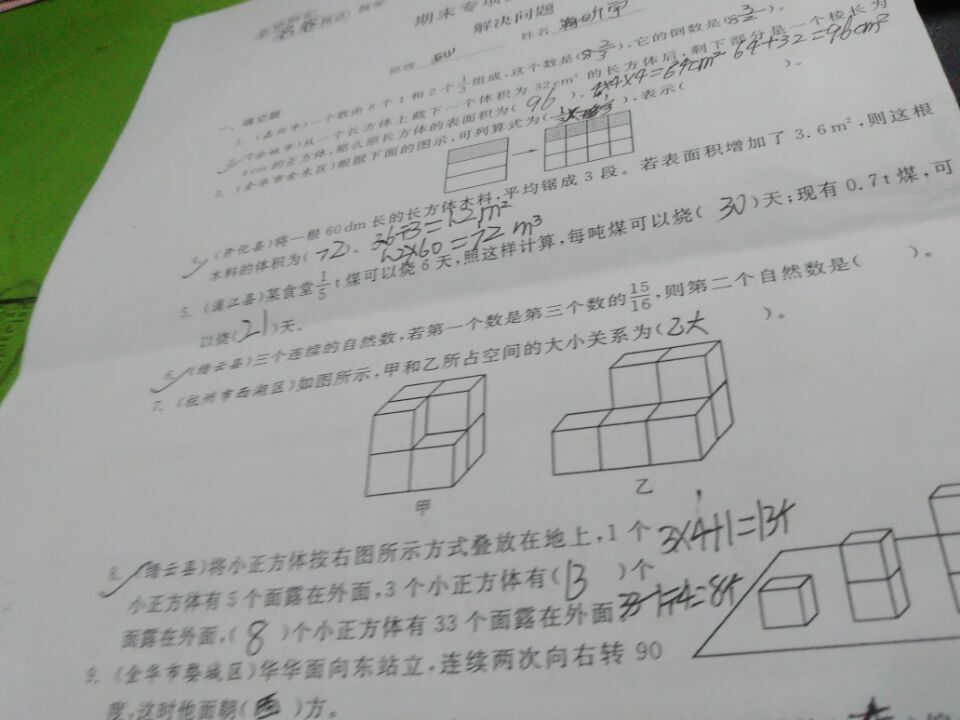 名卷 数学
期末专项
解决问题
班级 姓名
一、填空题
1. (嘉兴市)一个数由8个1和2个1/3组成,这个数是(8 2/3),它的倒数是(8 3/2)。
2. 从一个长方体上截下一个体积为32cm³的长方体后,剩下部分是一个棱长为
4cm的正方体,那么原长方体的表面积为(96)。4×4×4=64cm² 64+32=96cm²
3. (金华市金东区)根据下面的图示,可列算式为( ),表示( )。
4. (开化县)将一根60dm长的长方体木料,平均锯成3段。若表面积增加了3.6m²,则这根
木料的体积为(72)。3.6÷3=1.2m²
1.2×60=72m³
5. (浦江县)某食堂1/5t煤可以烧6天,照这样计算,每吨煤可以烧(30)天;现有0.7t煤,可
以烧(21)天。
6. (缙云县)三个连续的自然数,若第一个数是第三个数的15/16,则第二个自然数是( )。
7. (杭州市西湖区)如图所示,甲和乙所占空间的大小关系为(乙大)。
甲 乙
8. (缙云县)将小正方体按右图所示方式叠放在地上,1个 3×4+1=13个
小正方体有5个面露在外面,3个小正方体有(13)个
面露在外面,(8)个小正方体有33个面露在外面。33-1÷4=8个
9. (金华市婺城区)华华面向东站立,连续两次向右转90
度,这时他面朝(西)方。